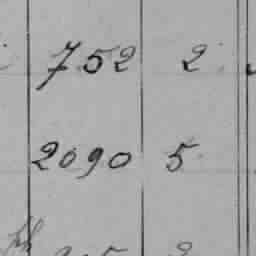 752 2
2090 5